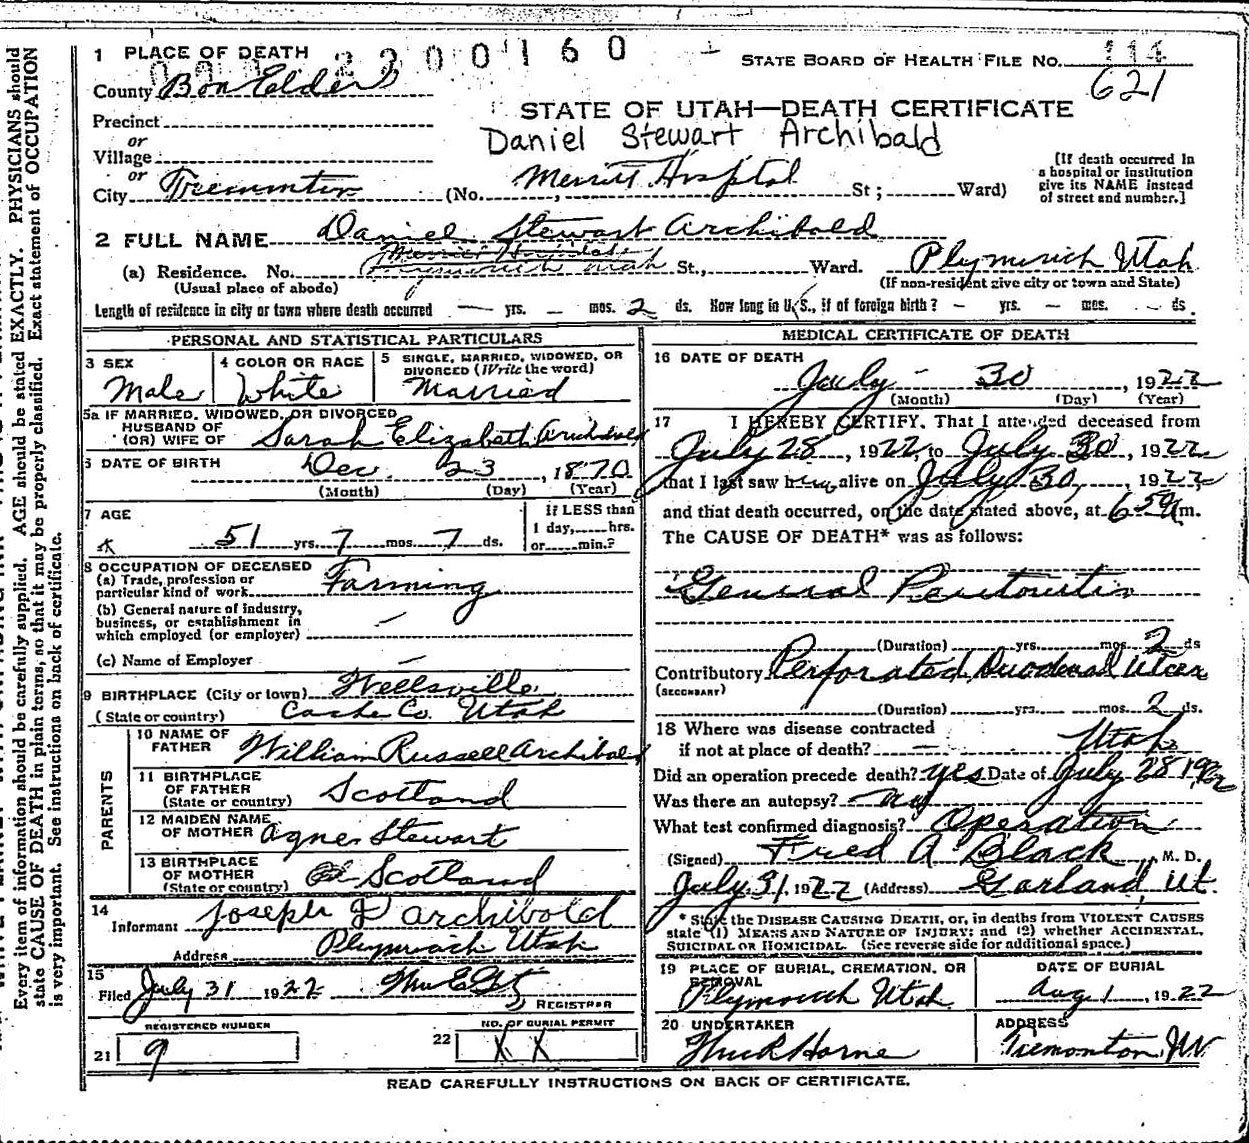 1 PLACE OF DEATH
2300160
STATE BOARD OF HEALTH FILE NO. 114
621
County Box Elder
STATE OF UTAH—DEATH CERTIFICATE
Precinct
Daniel Stewart Archibald
or
Village
or
City Tremonton (No. Merritt Hospital St; Ward)
[If death occurred in a hospital or institution give its NAME instead of street and number.]
2 FULL NAME Daniel Stewart Archibald
(a) Residence. No. Plymouth Utah St., Ward. Plymouth Utah
(Usual place of abode)
(If non-resident give city or town and State)
Length of residence in city or town where death occurred — yrs. — mos. 2 ds. How long in U.S., if of foreign birth? — yrs. — mos. — ds.
PERSONAL AND STATISTICAL PARTICULARS
3 SEX
Male
4 COLOR OR RACE
White
5 SINGLE, MARRIED, WIDOWED, OR DIVORCED (Write the word)
Married
5a IF MARRIED, WIDOWED, OR DIVORCED
HUSBAND OF
(OR) WIFE OF Sarah Elizabeth Archibald
6 DATE OF BIRTH Dec. 23, 1870
(Month) (Day) (Year)
7 AGE
51 yrs. 7 mos. 7 ds.
If LESS than
1 day, hrs.
or min.?
8 OCCUPATION OF DECEASED
(a) Trade, profession or
particular kind of work Farming
(b) General nature of industry,
business, or establishment in
which employed (or employer) —
(c) Name of Employer —
9 BIRTHPLACE (City or town) Wellsville
(State or country) Cache Co. Utah
PARENTS
10 NAME OF
FATHER William Russell Archibald
11 BIRTHPLACE
OF FATHER
(State or country) Scotland
12 MAIDEN NAME
OF MOTHER Agnes Stewart
13 BIRTHPLACE
OF MOTHER
(State or country) Scotland
14
Informant Joseph J Archibold
Address Plymouth Utah
15
Filed July 31 1922
REGISTRAR
REGISTERED NUMBER
21 9
NO. OF BURIAL PERMIT
22 X X
MEDICAL CERTIFICATE OF DEATH
16 DATE OF DEATH
July - 30, 1922
(Month) (Day) (Year)
17 I HEREBY CERTIFY, That I attended deceased from
July 28, 1922, to July 30, 1922
that I last saw him alive on July 30, 1922
and that death occurred, on the date stated above, at m.
The CAUSE OF DEATH* was as follows:
General Peritonitis
(Duration) yrs. mos. 2 ds
Contributory Perforated Duodenal Ulcer
(SECONDARY)
(Duration) yrs. mos. 2 ds.
18 Where was disease contracted
if not at place of death? — Utah
Did an operation precede death? yes Date of July 28 1922
Was there an autopsy? no
What test confirmed diagnosis? Operation
(Signed) Fred A Black, M. D.
July 31, 1922 (Address) Garland, Ut.
* State the DISEASE CAUSING DEATH, or, in deaths from VIOLENT CAUSES
state (1) MEANS AND NATURE OF INJURY; and (2) whether ACCIDENTAL,
SUICIDAL OR HOMICIDAL. (See reverse side for additional space.)
19 PLACE OF BURIAL, CREMATION, OR
REMOVAL
Plymouth Utah
DATE OF BURIAL
Aug 1, 1922
20 UNDERTAKER
Horne
ADDRESS
Tremonton
READ CAREFULLY INSTRUCTIONS ON BACK OF CERTIFICATE.
Every item of information should be carefully supplied. AGE should be stated EXACTLY. PHYSICIANS should
state CAUSE OF DEATH in plain terms, so that it may be properly classified. Exact statement of OCCUPATION
is very important. See instructions on back of certificate.